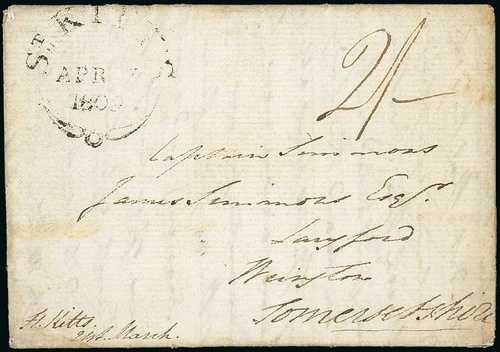 St KITTS
APR
1809
2/-
Captain Simmons
James Simmons Esqr.
Langford
Wrington
Somersetshire
St. Kitts
21st. March.